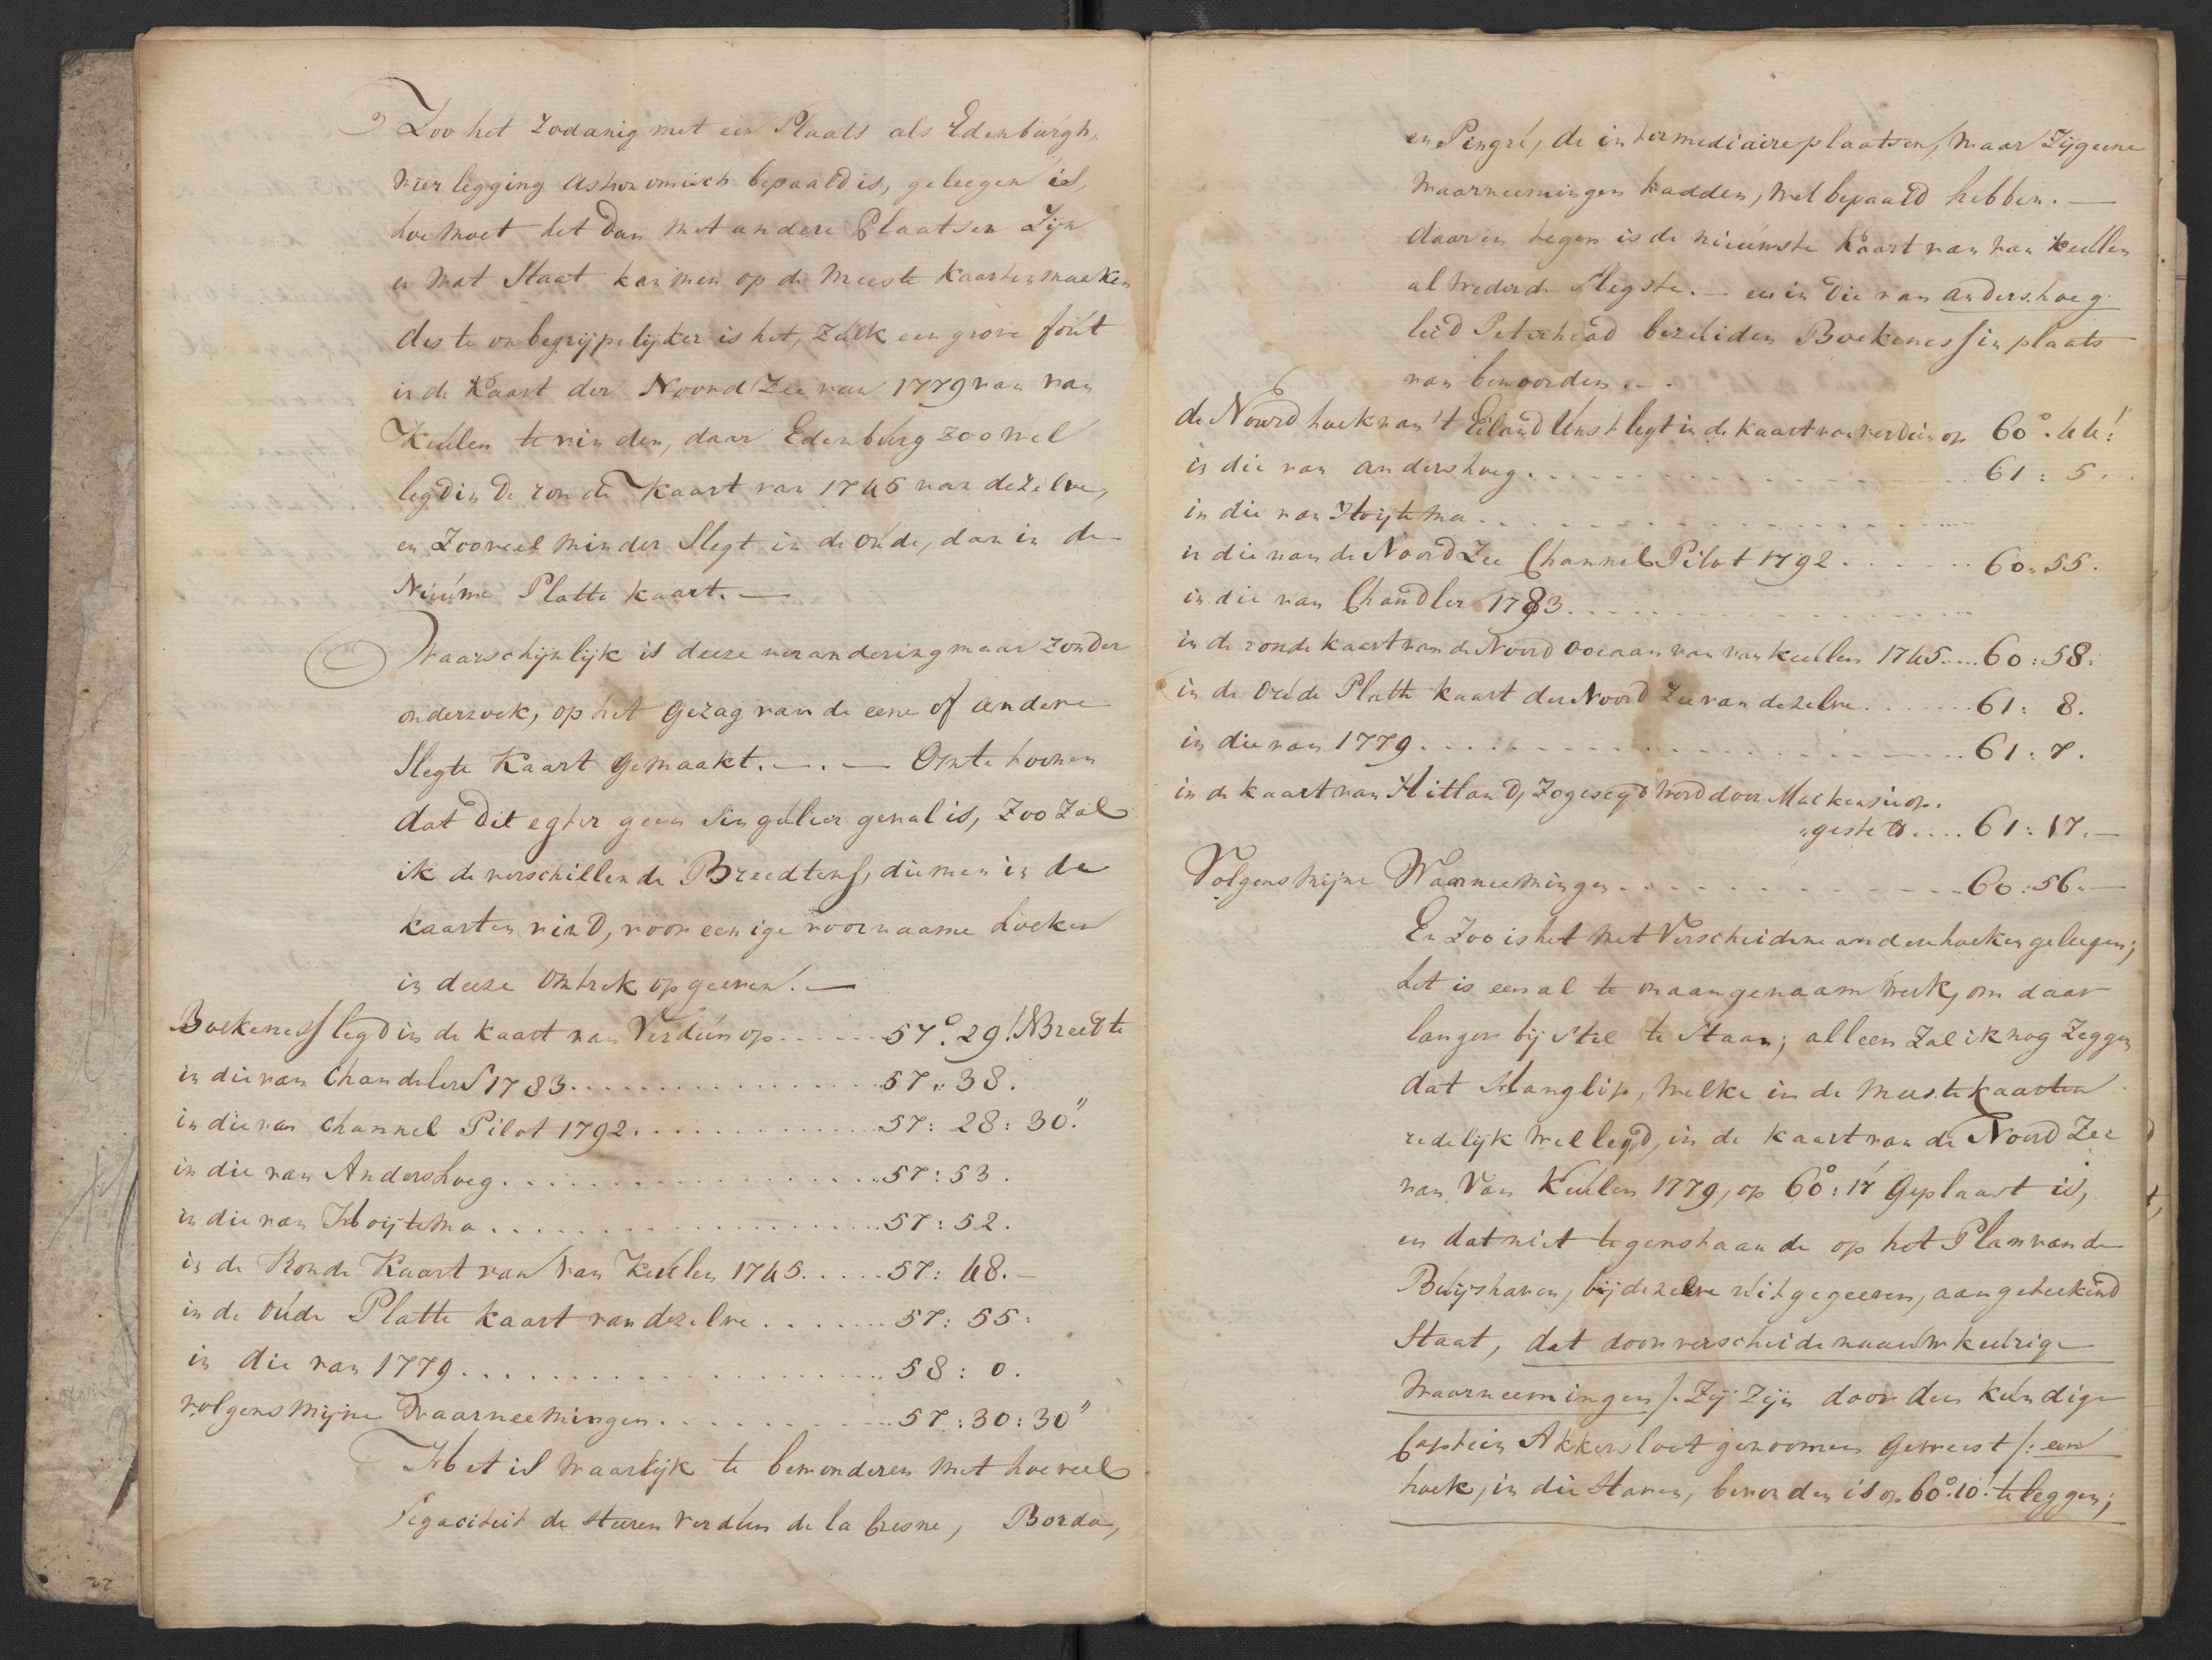 Zoo het zodanig met een Plaats als Edenburgh,
wier legging astronomisch bepaald is, geleegen is,
hoe moet het dan met andere Plaatsen Zijn
en wat Staat kan men op de meeste kaarten maaken
des te onbegrijpelijker is het, zulk een grove fout
in de Kaart der Noord Zee van 1779 van van
Keulen te vinden, daar Edenburg zoo wel
legd in de ronde Kaart van 1745 van dezelve,
en Zooveel minder Slegt in de oude, dan in de
Nieuwe Platte kaart. —
Waarschijnlijk is deeze verandering maar zonder
onderzoek, op het gezag van de eene of andere
Slegte Kaart gemaakt. —. — Om te toonen
dat dit egter geen Singulier geval is, Zoo Zal
ik de verschillende Breedtens, die men in de
kaarten vind, voor eenige voornaame hoeken
in deeze omtrek opgeeven. —
Boekeness legd in de kaart van Verdun op ...... 57°. 29'. NBreedte
in die van Chandelers 1783 ................ 57 : 38.
in die van channel Pilot 1792 ............. 57 : 28 : 30."
in die van Andershoeg ................. 57 : 53.
in die van Hoijtema ................... 57 : 52.
in de Ronde Kaart van van Keulen 1745 ..... 57 : 48. —
in de oude Platte kaart van dezelve ....... 57 : 55 :
in die van 1779 ..................... 58 : 0.
volgens mijne Waarneemingen ........... 57 : 30 : 30"
Het is waarlijk te bewonderen met hoe veel
Segaciteit de Heeren Verdun de la Cresne, Borda,
en Pingré, de intermediaire plaatsen, waar Zij geene
waarneemingen hadden, wel bepaald hebben. —
daar en tegen is de nieuwste Kaart van van Keulen
al weder de Slegste. — en in die van andershoeg
leid Peterhead bezuiden Boekeness in plaats
van benoorden. —.
de Noord hoek van 't Eiland Unst legt in de kaart van verdun op 60°. 44'.
in die van andershoeg .................. 61 : 5.
in die van Hoijtema ..................
in die van de Noord Zee Channel Pilot 1792 ...... 60 : 55.
in die van Chandler 1783 ..................
in de ronde kaart van de Noord Oceaan van van keulen 1745 .... 60 : 58.
in de oude Platte kaart der Noord Zee van dezelve ....... 61 : 8.
in die van 1779 ..................... 61 : 7.
in de kaart van Hitland, Zo gesegd word door Mackensie op.
"gesteld .... 61 : 17. —
Volgens mijne Waarneemingen .............. 60 : 56. —
En Zoo is het met Verscheidene andere hoeken geleegen;
het is een al te onaangenaam werk, om daar
langer bij Stil te Staan; alleen Zal ik nog Zeggen
dat Hanglip, welke in de meeste kaarten
redelijk wel legd, in de kaart van de Noord Zee
van Van Keulen 1779, op 60° : 17' Geplaast is,
en dat niet tegenstaande op het Plan van de
Buijshaven, bij dezelve uitgegeeven, aangeteekend
Staat, dat door verscheide naauwkeurige
Waarneemingen /: Zij Zijn door den kundige
Captein Akkersloot genoomen geweest :/ een
hoek, in die Haven, bevonden is op 60°. 10'. te leggen;